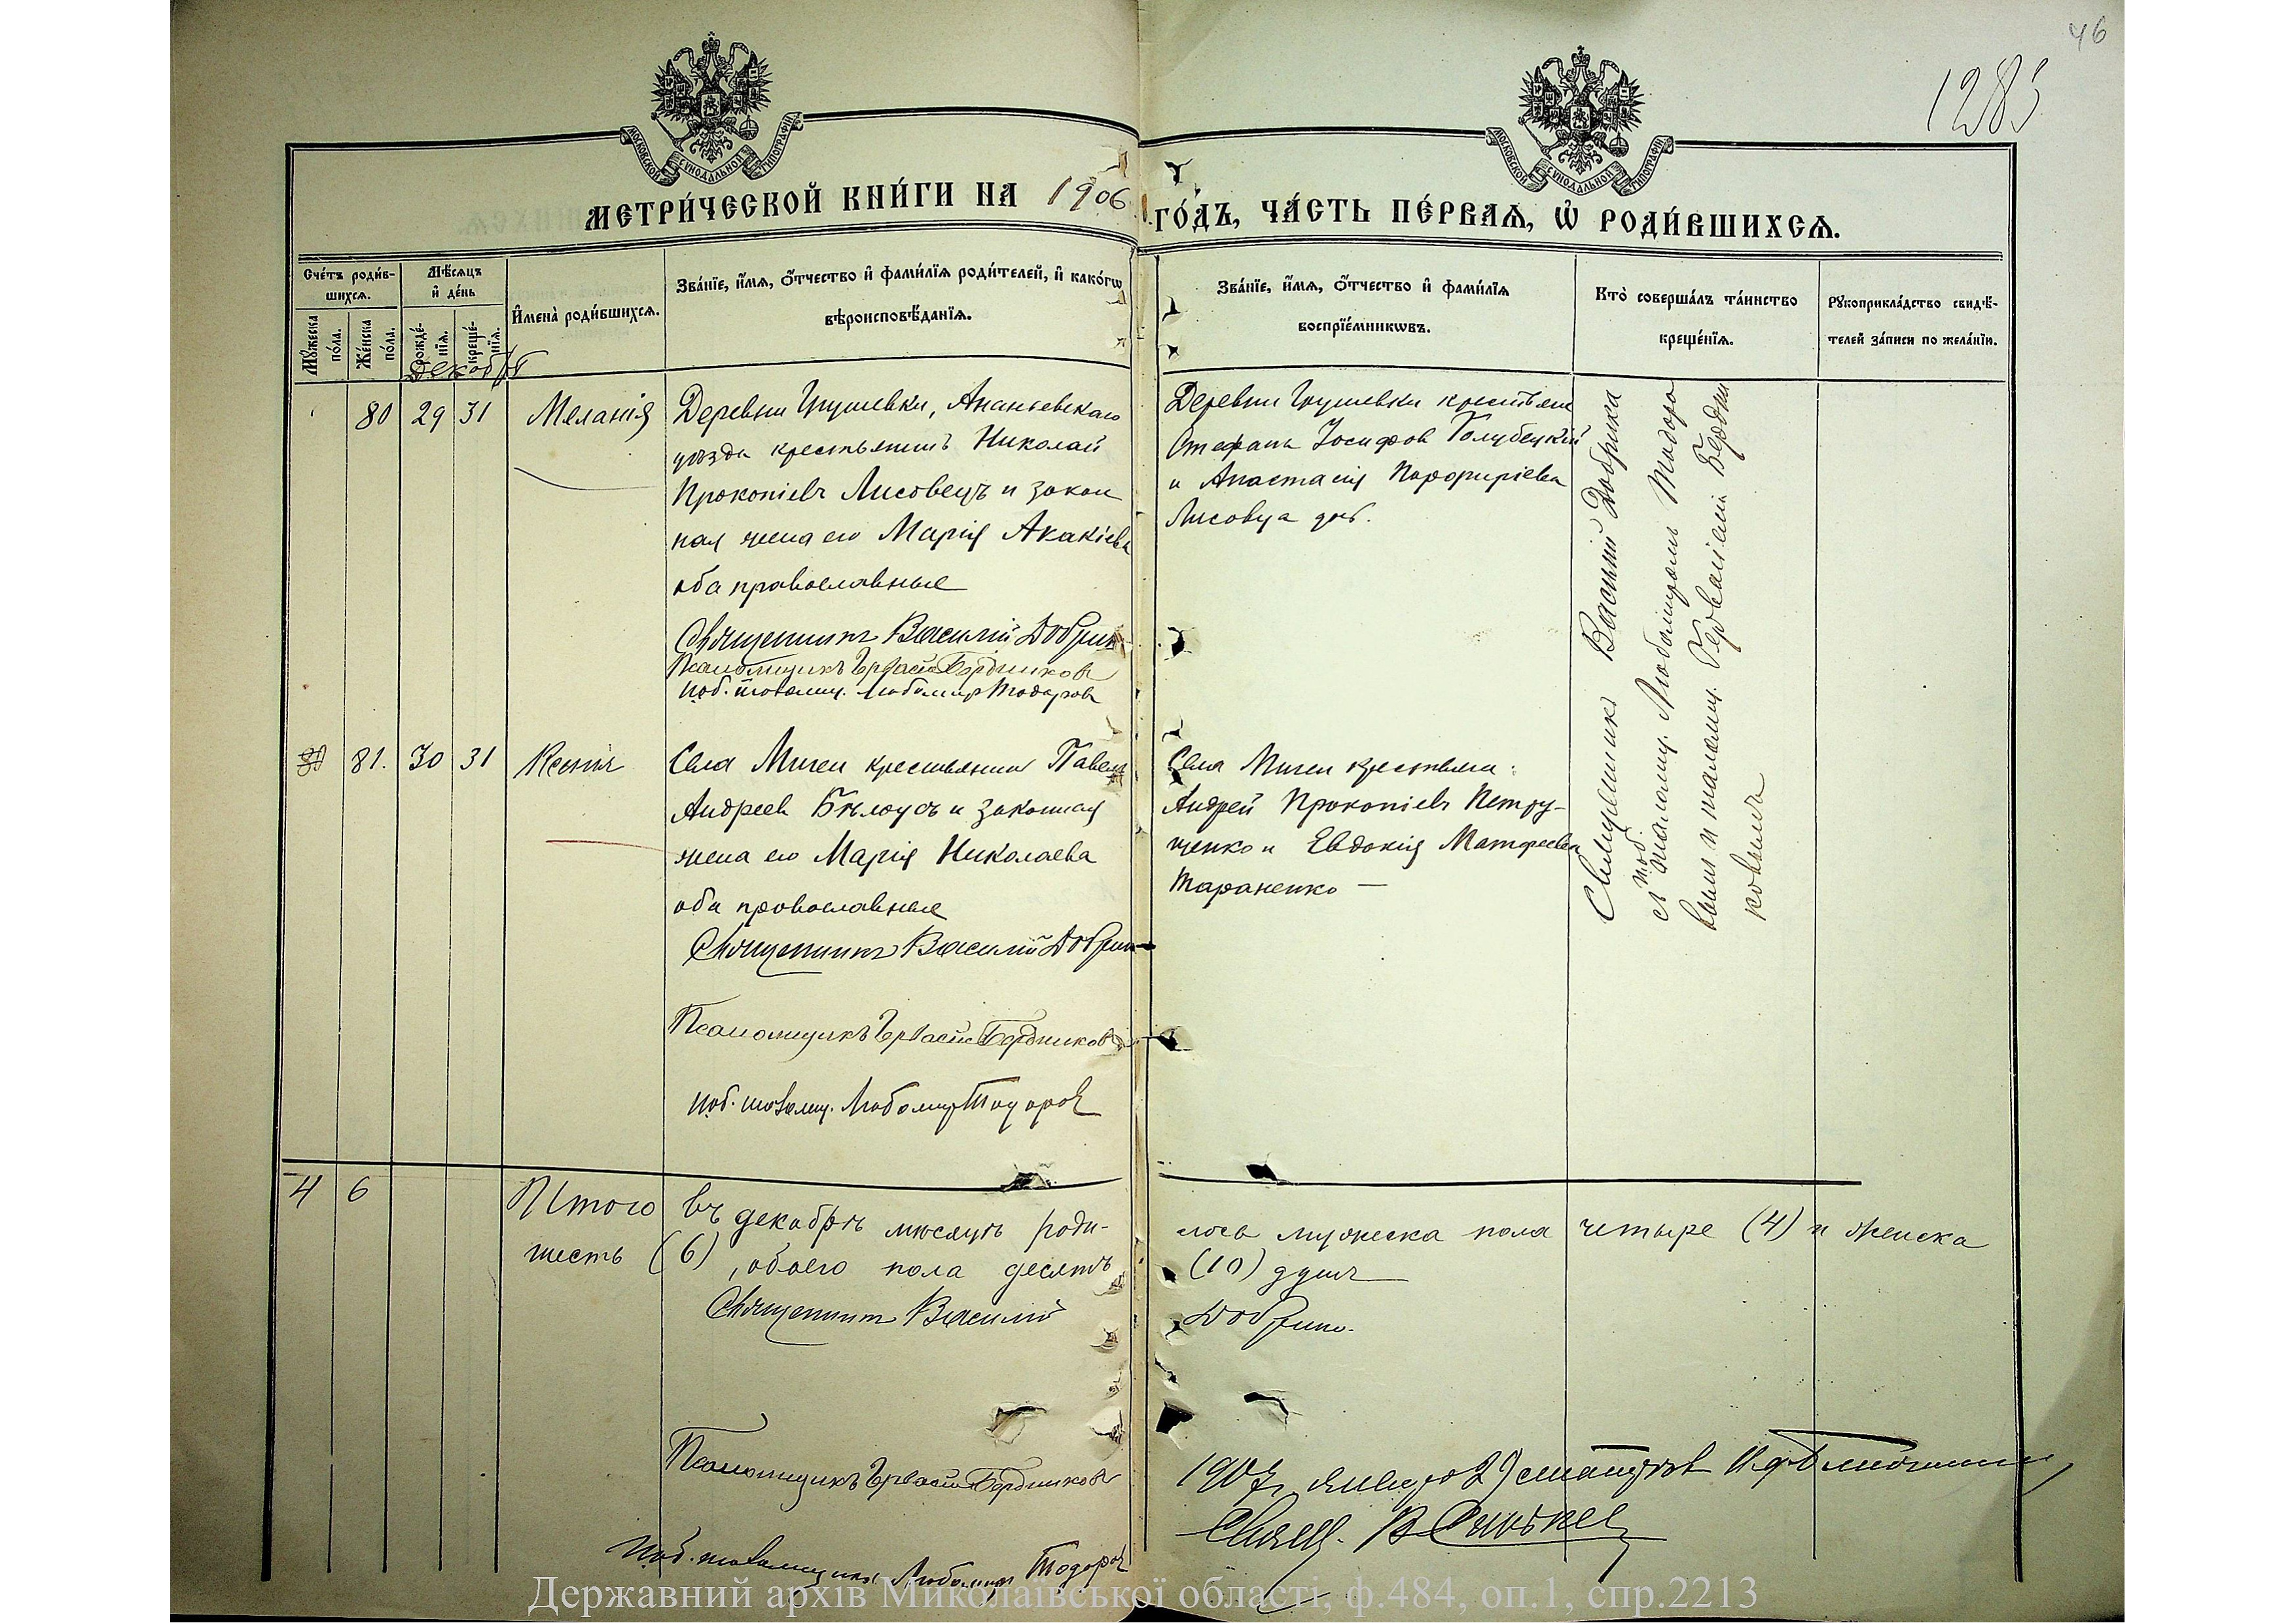 46
1283
МОСКОВСКОЙ СѴНОДАЛЬНОЙ ТИПОГРАФІИ
МОСКОВСКОЙ СѴНОДАЛЬНОЙ ТИПОГРАФІИ
МЕТРИ́ЧЕСКОЙ КНИ́ГИ НА 1906 ГО́ДЪ, ЧА́СТЬ ПЕ́РВАѦ, Ѡ҆ РОДИ́ВШИХСѦ.
Сче́тъ роди́в-
шихсѧ.
Мꙋ́жеска по́ла.
Же́нска по́ла.
Мѣ́сѧцъ и҆ де́нь
рожде́-
нїѧ.
креще́-
нїѧ.
И҆мена̀ роди́вшихсѧ.
Зва́нїе, и҆́мѧ, ѻ҆́тчество и҆ фами́лїѧ роди́телей, и҆ како́гѡ
вѣроисповѣ́данїѧ.
Зва́нїе, и҆́мѧ, ѻ҆́тчество и҆ фами́лїѧ
воспрїе́мникѡвъ.
Кто̀ соверша́лъ та́инство
креще́нїѧ.
Рꙋкоприкла́дство свидѣ́-
телей за́писи по жела́нїю.
Декабрь
80 29 31 Меланія
Деревни Грушевки, Ананьевскаго
уѣзда крестьянинъ Николай
Прокопіевъ Лисовецъ и закон
ная жена его Марія Акакіева
оба православные
Священникъ Василій Добрик
Псаломщикъ Гервасій Бердников
и.об. псаломщ. Любомир Тодоров
Деревни Грушевки крестьяне
Стефанъ Іосифов Голубецкій
и Анастасія Порфиріева
Лисовца
Священникъ Василій Добрика
съ и.об. псаломщ. Любомиромъ Тодоро
вымъ и псаломщ. Гервасіемъ Бердни
ковымъ
81. 30 31 Ксенія
Села Мигеи крестьянинъ Павелъ
Андреев Бѣлоусъ и законная
жена его Марія Николаева
оба православные
Священникъ Василій Добрик
Псаломщикъ Гервасій Бердников
и.об. псаломщ. Любомир Тодоров
Села Мигеи крестьяне:
Андрей Прокопіевъ Петру-
щенко и Евдокія Матфеева
Тараненко —
4 6 Итого въ декабрѣ мѣсяцѣ роди- лось мужеска пола четыре (4) и женска
шесть (6), обоего пола десять (10) душъ
Священникъ Василій Добрика.
Псаломщикъ Гервасій Бердников
И.об. псаломщика Любомир Тодоров
1907 января 29
Свящ. В
Державний архів Миколаївської області, ф.484, оп.1, спр.2213